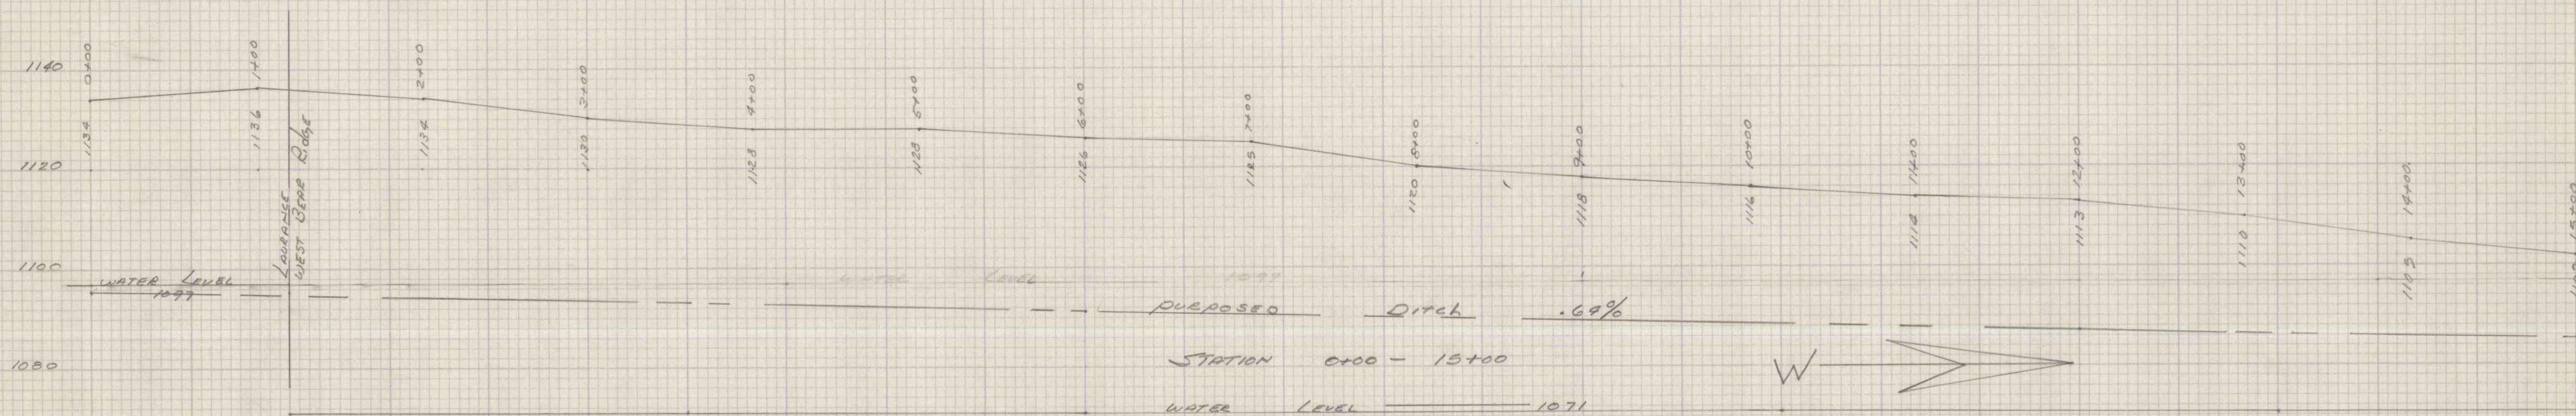 0+00 1+00 2+00 3+00 4+00 5+00 6+00 7+00 8+00 9+00 10+00 11+00 12+00 13+00 14+00 15+00
1140
1134 1136 1134 1130 1128 1128 1126 1125 1120 1118 1116 1114 1113 1110 1105
1120
LAURANCE
WEST BEAR Ridge
1100
WATER LEVEL
1097
WATER LEVEL 1097
PURPOSED Ditch .69%
STATION 0+00 - 15+00
W
1080
WATER LEVEL 1071